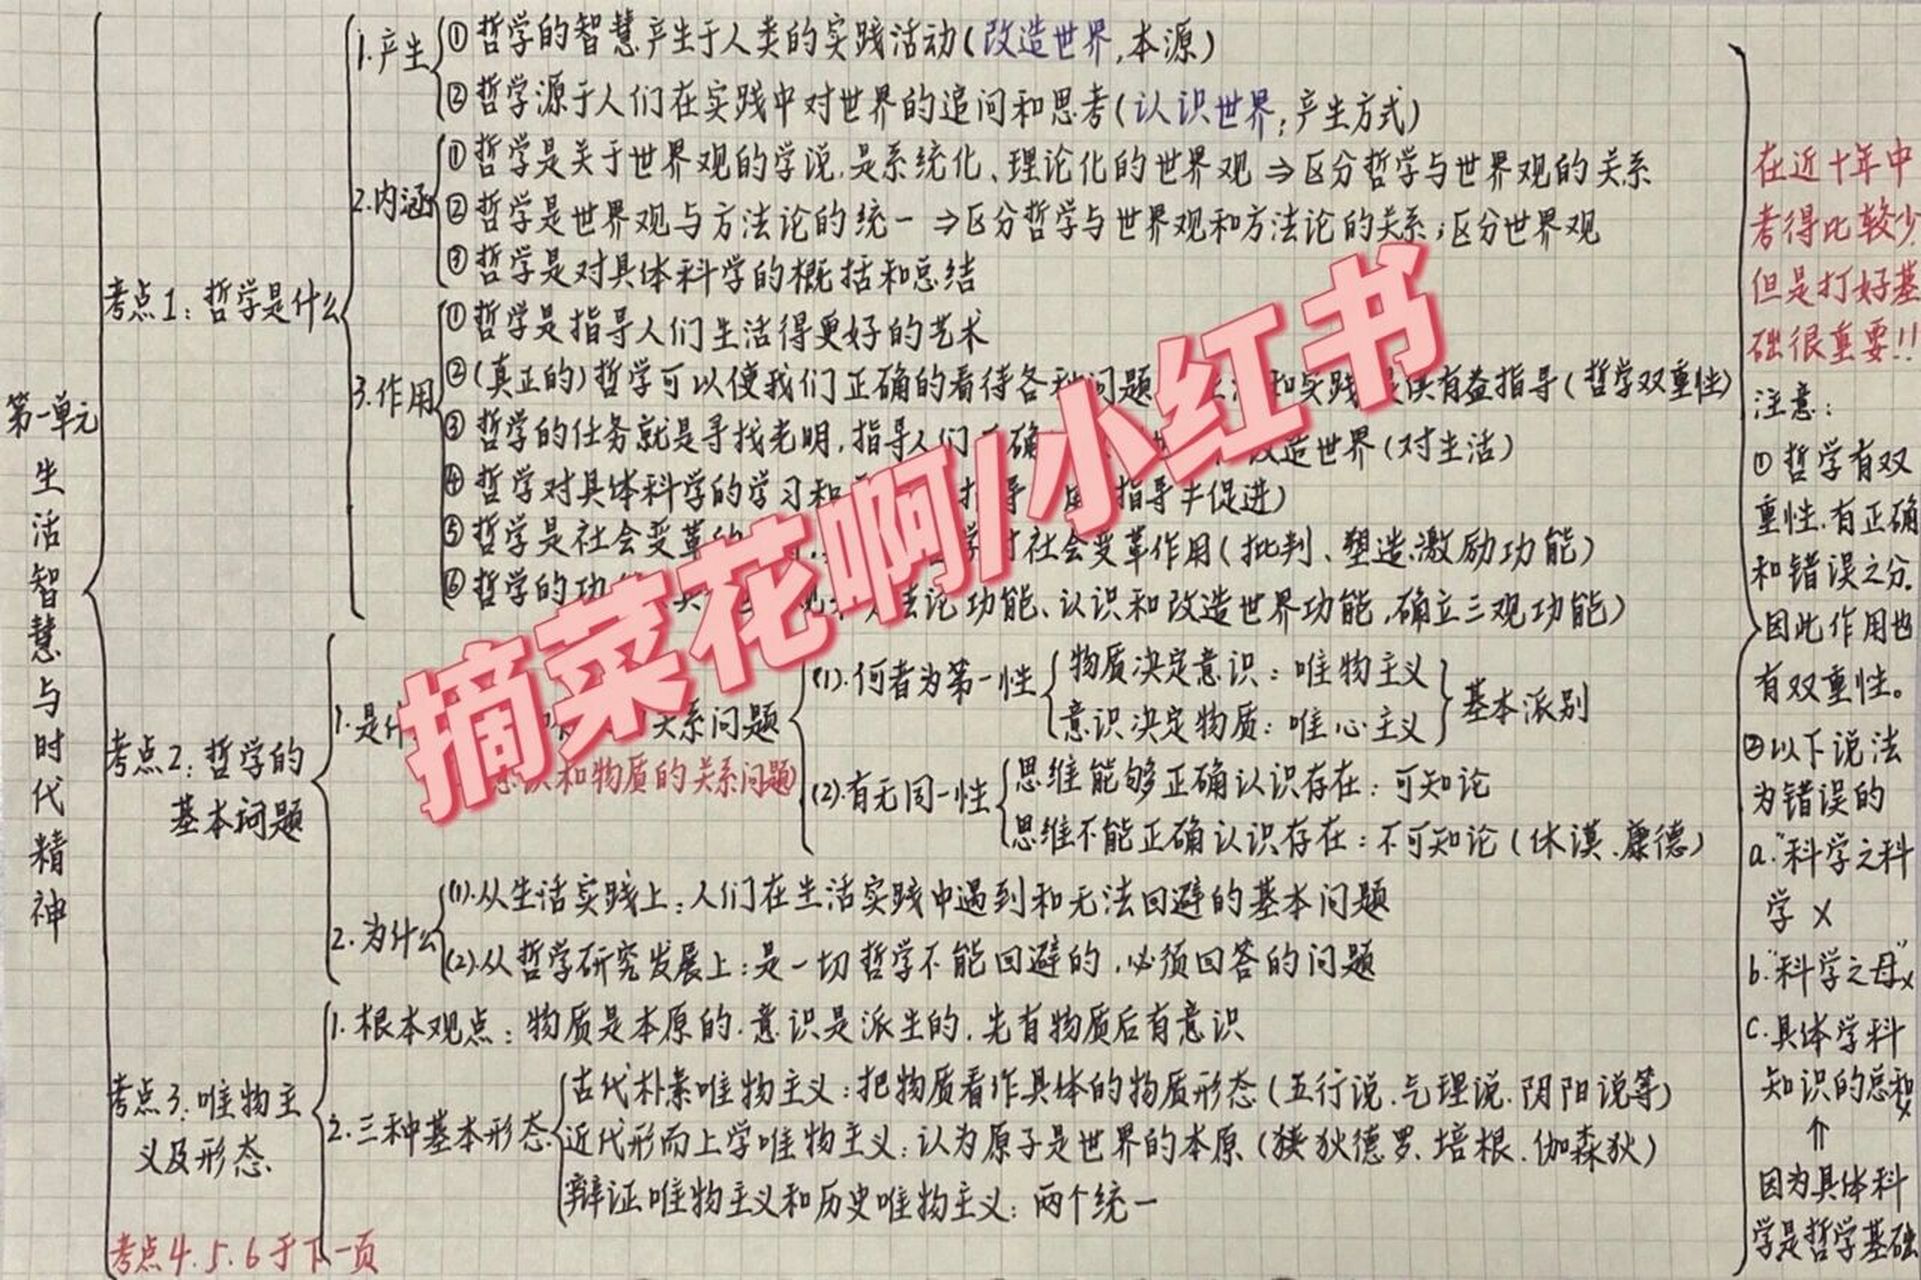 第一单元
生活智慧与时代精神
考点1：哲学是什么
1.产生
①哲学的智慧产生于人类的实践活动(改造世界,本源)
②哲学源于人们在实践中对世界的追问和思考(认识世界;产生方式)
2.内涵
①哲学是关于世界观的学说.是系统化、理论化的世界观⇒区分哲学与世界观的关系
②哲学是世界观与方法论的统一⇒区分哲学与世界观和方法论的关系;区分世界观
③哲学是对具体科学的概括和总结
3.作用
①哲学是指导人们生活得更好的艺术
②(真正的)哲学可以使我们正确的看待各种问题 和实践 供有益指导(哲学双重性)
③哲学的任务就是寻找光明,指导人们 正确 改造世界(对生活)
④哲学对具体科学的学习和 指导 指导+促进)
⑤哲学是社会变革的 社会变革作用(批判、塑造、激励功能)
⑥哲学的功 法论功能、认识和改造世界功能,确立三观功能)
考点2：哲学的
基本问题
1.是什 关系问题
意识和物质的关系问题)
(1).何者为第一性
物质决定意识：唯物主义
意识决定物质：唯心主义
基本派别
(2).有无同一性
思维能够正确认识存在：可知论
思维不能正确认识存在：不可知论(休谟、康德)
2.为什么
(1).从生活实践上：人们在生活实践中遇到和无法回避的基本问题
(2).从哲学研究发展上：是一切哲学不能回避的,必须回答的问题
考点3：唯物主
义及形态.
1.根本观点：物质是本原的.意识是派生的,先有物质后有意识
2.三种基本形态
古代朴素唯物主义：把物质看作具体的物质形态(五行说.气理说.阴阳说等)
近代形而上学唯物主义：认为原子是世界的本原(狭狄德罗.培根.伽森狄)
辩证唯物主义和历史唯物主义：两个统一
考点4.5.6于下一页
在近十年中
考得比较少
但是打好基
础很重要!!
注意：
①哲学有双
重性.有正确
和错误之分.
因此作用也
有双重性。
②以下说法
为错误的
a."科学之科
学 ×
b."科学之母"×
c.具体学科
知识的总和×
⇑
因为具体科
学是哲学基础
摘菜花啊/小红书